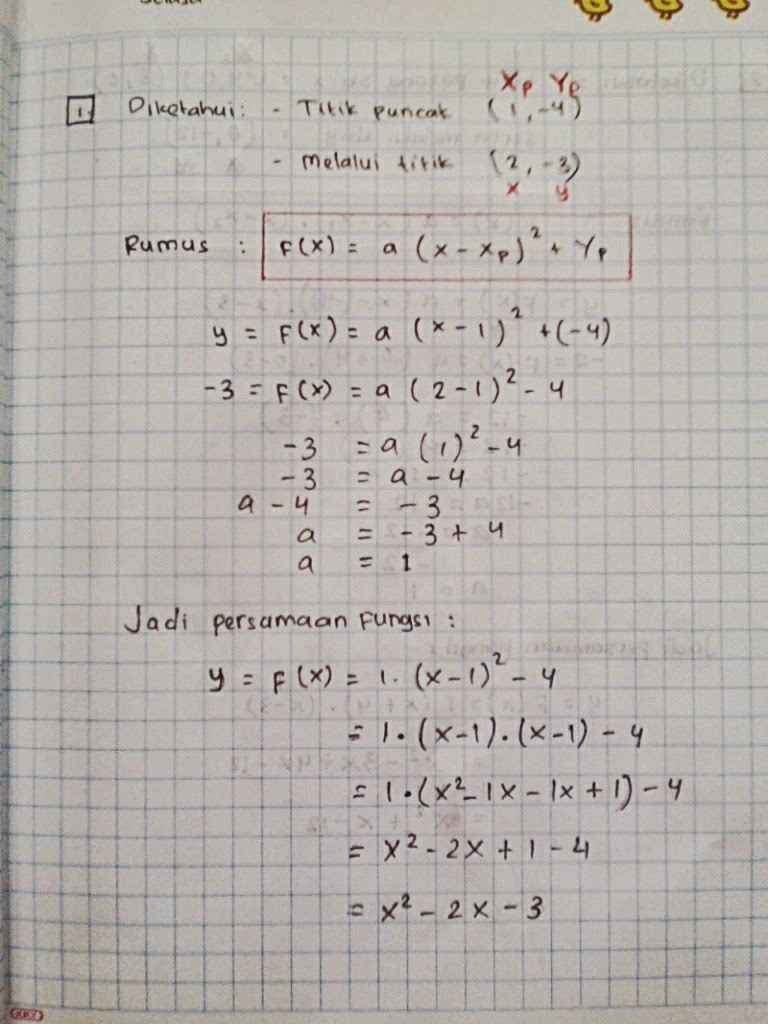 Xp Yp
1 Diketahui: - Titik puncak (1, -4)
- melalui titik (2, -3)
x y
Rumus : F(x) = a (x - xp)² + Yp
y = F(x) = a (x - 1)² + (-4)
-3 = F(x) = a (2 - 1)² - 4
-3 = a (1)² - 4
-3 = a - 4
a - 4 = -3
a = -3 + 4
a = 1
Jadi persamaan Fungsi :
y = F(x) = 1. (x-1)² - 4
= 1 • (x-1) • (x-1) - 4
= 1 • (x² - 1x - 1x + 1) - 4
= x² - 2x + 1 - 4
= x² - 2x - 3